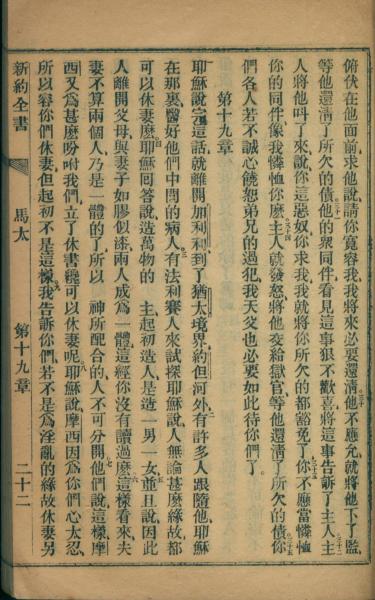 俯伏在他面前求他說請你寬容我我將來必要還清他不應允就將他下了監
等他還清了所欠的債他的衆同伴看見這事狠不歡喜將這事告訴了主人主
人將他叫了來說你這惡奴你求我我就將你所欠的都豁免了你不應當憐恤
你的同伴像我憐恤你麽主人就發怒將他交給獄官等他還清了所欠的債你
們各人若不誠心饒恕弟兄的過犯我天父也必要如此待你們了
第十九章
耶穌說完這話就離開加利利到了猶太境界約但河外有許多人跟隨他耶穌
在那裏醫好他們中間的病人有法利賽人來試探耶穌說人無論甚麽緣故都
可以休妻麽耶穌回答說造萬物的 主起初造人是造一男一女並且說因此
人離開父母與妻子如膠似漆兩人成爲一體這經你沒有讀過麽這樣看來夫
妻不算兩個人乃是一體的了所以 神所配合的人不可分開他們說這樣摩
西又爲甚麽吩咐我們立了休書纔可以休妻呢耶穌說摩西因爲你們心太忍
所以容你們休妻但起初不是這樣我告訴你們若不是爲淫亂的緣故休妻另
新約全書 馬太 第十九章 二十二